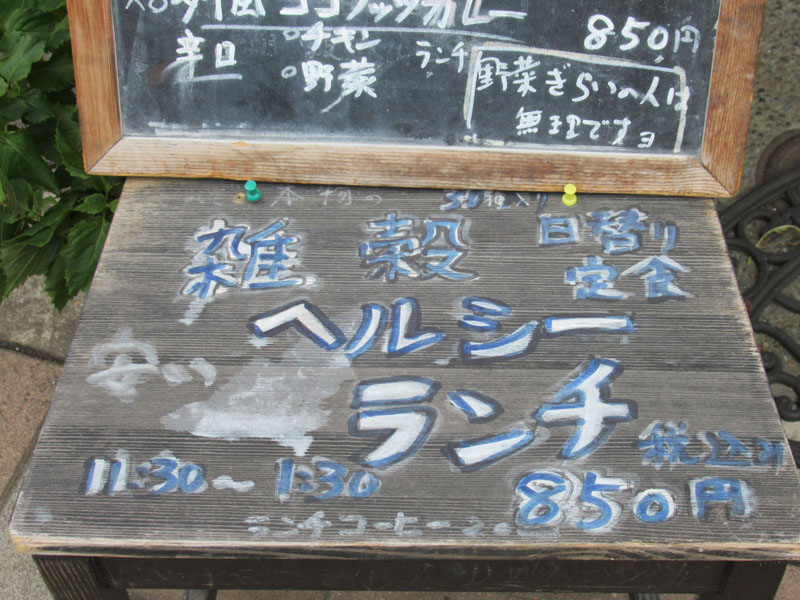 タイ風ココナッツカレー
850円
辛口 ○チキン ランチ
○野菜
野菜ぎらいの人は
無理ですョ
雑穀 日替り
定食
ヘルシー
安い
ランチ
税込み
11:30～1:30 850円
ランチコーヒー